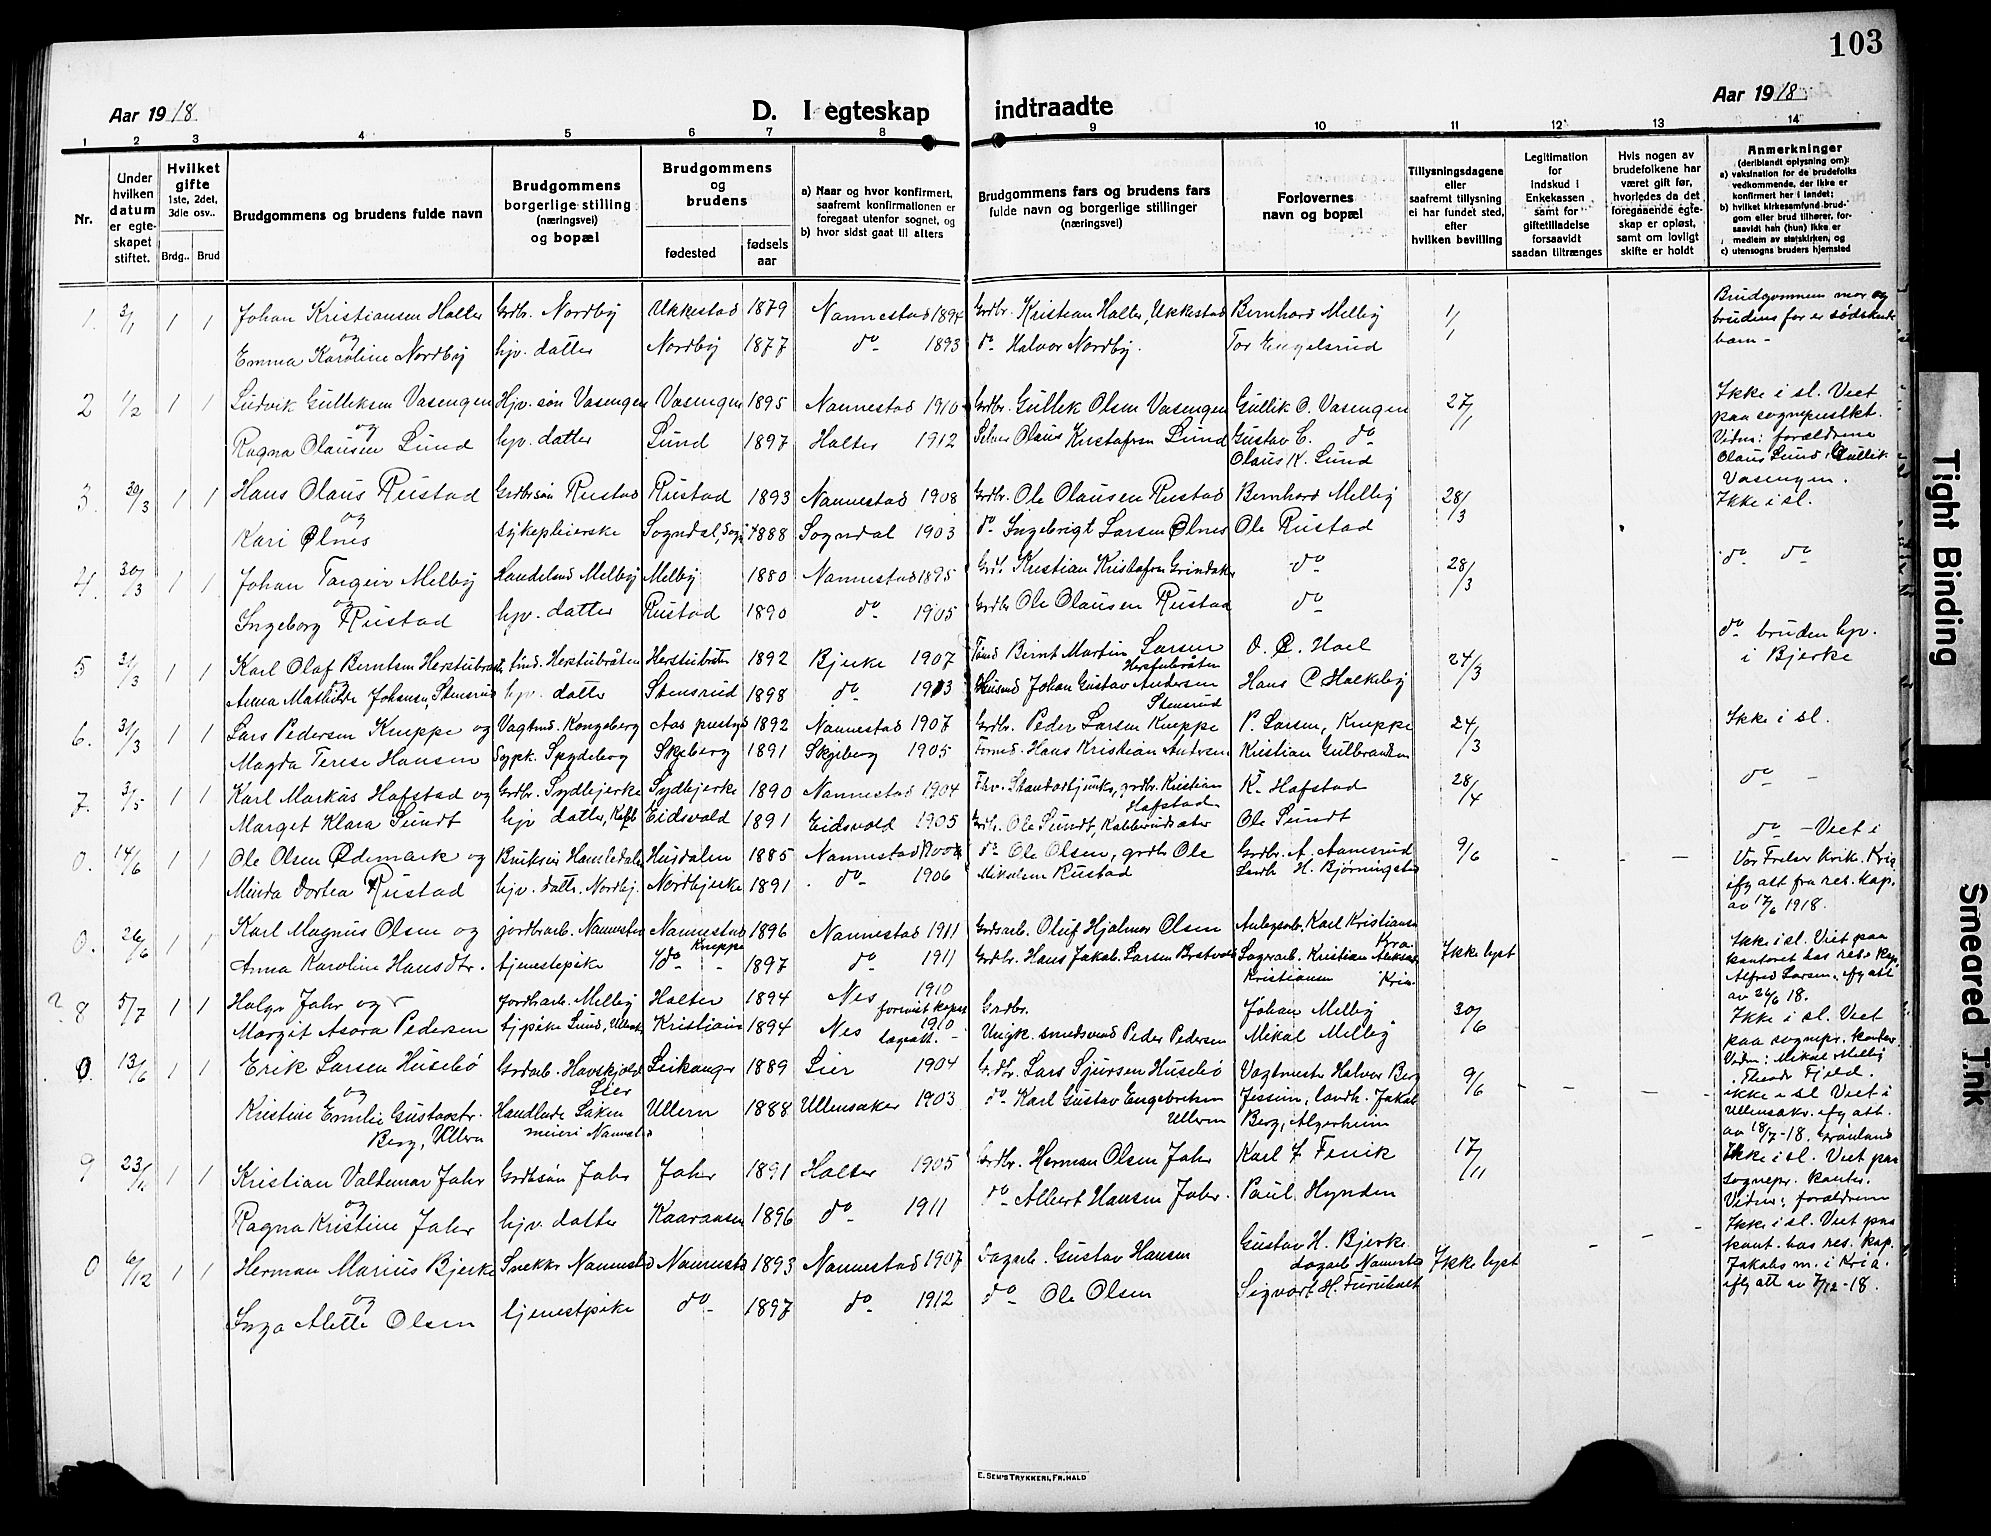 103
Aar 1918
D. I egteskap indtraadte
Aar 1918
1 2 3 4 5 6 7 8 9 10 11 12 13 14
Nr.
Under hvilken datum er egteskapet stiftet.
Hvilket gifte 1ste, 2det, 3die osv..
Brdg.. Brud
Brudgommens og brudens fulde navn
Brudgommens borgerlige stilling (næringsvei) og bopæl
Brudgommens og brudens
fødested
fødsels aar
a) Naar og hvor konfirmert, saafremt konfirmationen er foregaat utenfor sognet, og
b) hvor sidst gaat til alters
Brudgommens fars og brudens fars fulde navn og borgerlige stillinger (næringsvei)
Forlovernes navn og bopæl
Tillysningsdagene eller saafremt tillysning ei har fundet sted, efter hvilken bevilling
Legitimation for Indskud i Enkekassen samt for giftetilladelse forsaavidt saadan tiltrænges
Hvis nogen av brudefolkene har været gift før, hvorledes da det foregaaende egteskap er opløst, samt om lovligt skifte er holdt
Anmerkninger (deriblandt oplysning om):
a) vaksination for de brudefolks vedkommende, der ikke er konfirmert her i landet;
b) hvilket kirkesamfund brudgom eller brud tilhører, forsaavidt hah (hun) IKKE er medlem av statskirken, og
c) utensogns bruders hjemsted
1. 3/1 1 1 Johan Kristiansen Haller Grdbr. Nordby Ukkestad 1879 Nannestad 1894 Grdbr. Kristian Haller, Ukkestad Bernhard Melby 1/1 Brudgommens mor og brudens far er sødskendebarn-
og
Emma Karoline Nordby hjv. datter Nordby 1877 do 1893 do Halvor Nordby. Tor Engelsrud
2 1/2 1 1 Ludvik Gulliksen Vasengen Hjv. søn Vasengen Vasengen 1895 Nannestad 1910 Grdbr. Gullek Olsen Vasengen Gullik O. Vasengen 27/1 Ikke i sl. Viet
og
Ragna Olausen Lund hjv. datter Lund 1897 Holter 1912 Olaus Kristofersen Lund Gustav C. do
Olaus K. Lund
Vidner: forældrene Olaus Lund, Gullik Vasengen.
3. 30/3 1 1 Hans Olaus Rustad Grdbrsøn Rustad Rustad 1893 Nannestad 1908 Grdbr. Ole Olausen Rustad Bernhard Melby 28/3 Ikke i sl.
og
Kari Ølnes sykepleierske Sogndal, Sogn 1888 Sogndal 1903 do Ingebrigt Larsen Ølnes Ole Rustad
4. 30/3 1 1 Johan Torgeir Melby Handelsmd Melby Melby 1880 Nannestad 1895 Kristian Kristofersen Grindaker do 28/3 do do
og
Ingeborg Rustad hjv. datter Rustad 1890 do 1905 Grdbr Ole Olausen Rustad do
5 31/3 1 1 Karl Olaf Berntsen Herstubråten Herstubråten Herstubråten 1892 Bjerke 1907 Bernt Martin Larsen Herstubråten O. C. Hoel 24/3 do bruden hjv. i Bjerke
og
Anna Mathilde Johansen, Stensrud hjv. datter Stensrud 1898 do 1913 Husmd Johan Gustav Andersen Stensrud Hans C Holkeby
6. 31/3 1 1 Lars Pedersen Kneppe og Vagtmd. Kongsberg Aas prestgd 1892 Nannestad 1907 Grdbr. Peder Larsen Kneppe P. Larsen, Kneppe 24/3 Ikke i sl.
Magda Terese Hansen Spydeberg Skjeberg 1891 Skjeberg 1905 Hans Kristian Andersen Kristian Gulbrandsen
7. 3/5 1 1 Karl Markus Hafstad og Grdbr. Sydbjerke Sydbjerke 1890 Nannestad 1904 Fhv. Standartjunker, grdbr. Kristian Hafstad K. Hafstad 28/4 do
Marget Klara Sundt hjv datter, Eidsvold 1891 Eidsvold 1905 Grdbr. Ole Sundt, Kabberudsæter Ole Sundt
0. 14/6 1 1 Ole Olsen Ødemark og Husdalen 1885 Nannestad do Ole Olsen, grdbr Ole Grdbr. A. Aamesrud 9/6 - - do - Viet i Vor Frelser Kirk. Kria
Minda Dortea Rustad hjv. dattr. Nordbj. Nordbjerke 1891 do 1906 Mikalsen Rustad Landh H. Bjørningstad
ifg att fra res. kap. av 17/6 1918.
0. 26/6 1 1 Karl Magnus Olsen og jordbrarb. Nannestad Nannestad 1896 Nannestad 1911 Oluf Hjalmar Olsen Anlegsarb. Karl Kristiansen Kra Ikke lyst
Anna Karoline Hansdtr. tjenestepike do Kneppe 1897 do 1911 Grdbr. Hans Jakob Larsen Kristian
Kristiansen Kria
Ikke i sl. Viet paa kontoret hos res. kap. Alfred Larsen, ifg att av 26/6 18.
8 5/7 1 1 Helge Jahr og jordbrarb. Melby Holter 1894 Nes 1910 Grdbr. Johan Melby 30/6 Ikke i sl. Viet
Margit Asora Pedersen tjpike Lund, Kristiania 1894 Nes 1910 Ungk. smedsvend Peder Pedersen Mikal Melby
paa sognepr. kontor Vidn: Mikal Melby, Theodr Fjeld.
0. 13/6 1 1 Erik Larsen Husebø Lier Leikanger 1889 Lier 1904 Grdbr. Lars Sjursen Husebø Vagtmester Halvor Berg 9/6 - - ikke i sl Viet i
og
Kristine Emilie Gustavstr. Berg, Ullern meieri Nannest. Ullern 1888 Ullensaker 1903 do Karl Gustav Engebretsen Ullern Jessum, landh. Jakob Berg, Algarheim
Ullensakr. ifg att. av 18/7-18. Grønland
9 23/11 1 1 Kristian Valtemar Jahr Grdbsøn Jahr Jahr 1891 Holter 1905 Grdbr. Herman Olsen Jahr Karl J. Fenik 17/11 Ikke i sl. Viet paa sognepr. kontor.
og
Ragna Kristine Jahr hjv. datter 1896 do 1911 do Albert Hansen Jahr. Paul Hynden Vidner: forældrene
0 6/12 1 1 Herman Marius Bjerke Snekkr Nannestd Nannestd 1893 Nannestad 1907 Dagarb. Gustav Hansen Gustav H. Bjerke dagarb Nannestad Ikke lyst - - Ikke i sl. Viet paa kont. hos res. kap. Jakobs m. i Kria.
og
Inga Alette Olsen tjenestpike do 1897 do 1912 do Ole Olsen Sigvart H. Furuholt ifg att av 7/12-18.
E. SEM'S TRYKKERI, FR.HALD
Tight Binding
Smeared Ink